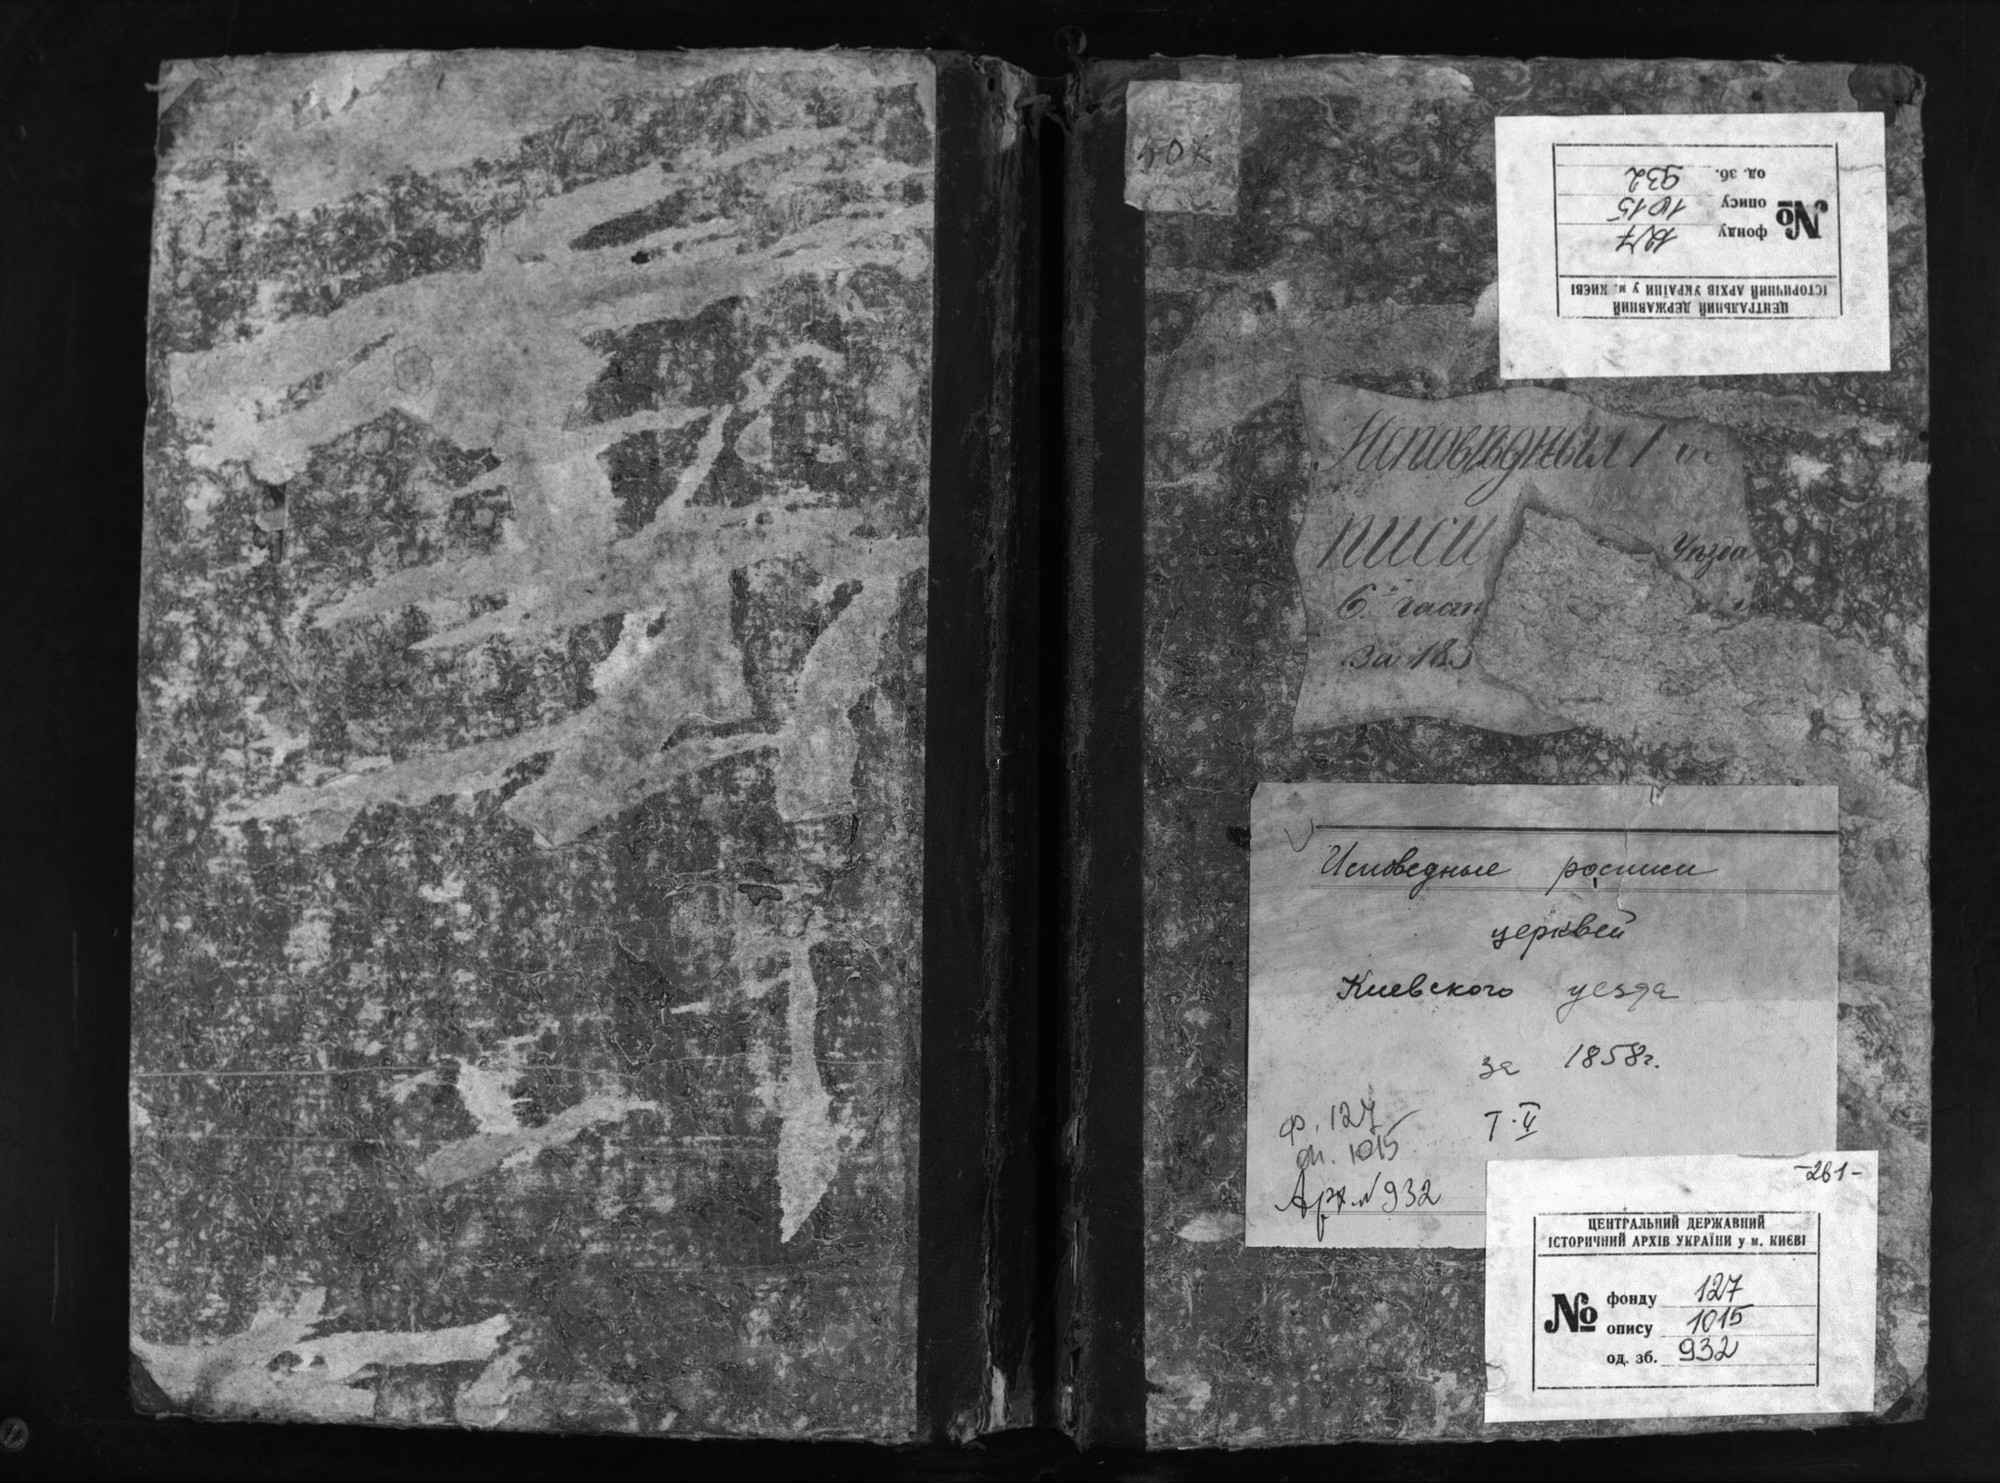 40х
ЦЕНТРАЛЬНИЙ ДЕРЖАВНИЙ
ІСТОРИЧНИЙ АРХІВ УКРАЇНИ у м. КИЄВІ
№
фонду 127
опису 1015
од. зб. 932
Исповѣдныя
писи
Уѣзда
6. част
За 185
Исповедные росписи
церквей
Киевского уезда
за 1858г.
Т. V
ф. 127
оп. 1015
Арх № 932
-261-
ЦЕНТРАЛЬНИЙ ДЕРЖАВНИЙ
ІСТОРИЧНИЙ АРХІВ УКРАЇНИ у м. КИЄВІ
№
фонду 127
опису 1015
од. зб. 932